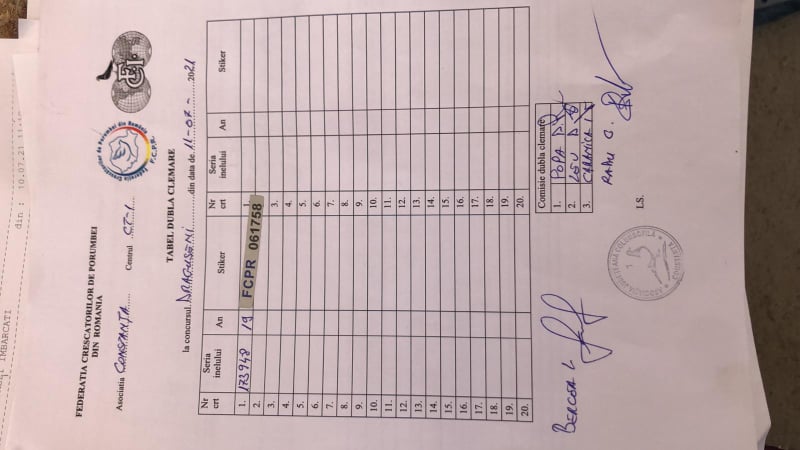 din : 10.07.21
IMBARCATI
FEDERATIA CRESCATORILOR DE PORUMBEI
DIN ROMANIA
Asociatia CONSTANȚA Centrul CT-1
Federatia Crescatorilor de Porumbei din România
F.C.P.R.
FCI
TABEL DUBLA CLEMARE
la concursul DRAGUSENI din data de 11-07-2021
Nr crt Seria inelului An Stiker Nr crt Seria inelului An Stiker
1. 173948 19 FCPR 061758 1.
2.
3. 3.
4. 4.
5. 5.
6. 6.
7. 7.
8. 8.
9. 9.
10. 10.
11. 11.
12. 12.
13. 13.
14. 14.
15. 15.
16. 16.
17. 17.
18. 18.
19. 19.
20. 20.
Comisie dubla clemare
1. POPA D.
2. LEU D.
3. CARANICA
BERCEA L.
RADU C.
L.S.
ASOCIATIA JUDETEANA COLUMBOFILA
CONSTANTA